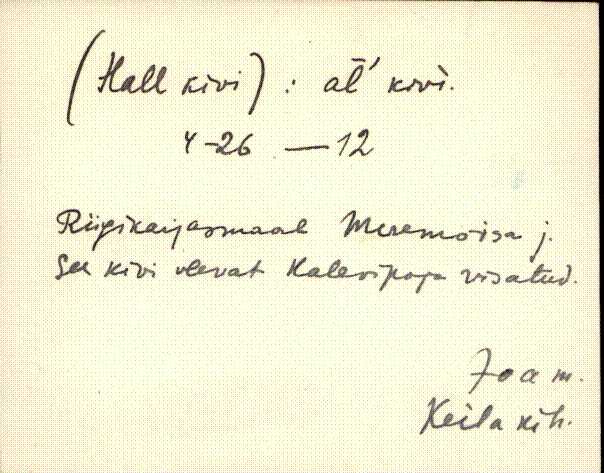 (Hall kivi) : āl' kivì.
4-26 — 12
Riigikarjasmaal Meremõisa j.
See kivi olevat Kalevipoja visatud.
Joa m.
Keila kih.